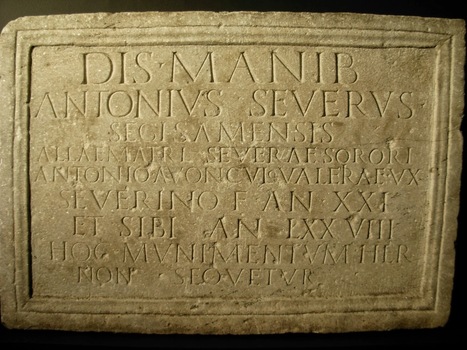 DIS · MANIB
ANTONIVS SEVERVS
SEGISAMENSIS
ALLAE MATRI SEVERAE SORORI
ANTONIO AVONCVL VALERAE VX
SEVERINO F AN XXI
ET SIBI AN LXXVIII
HOC MVNIMENTVM HER
NON SEQVETVR